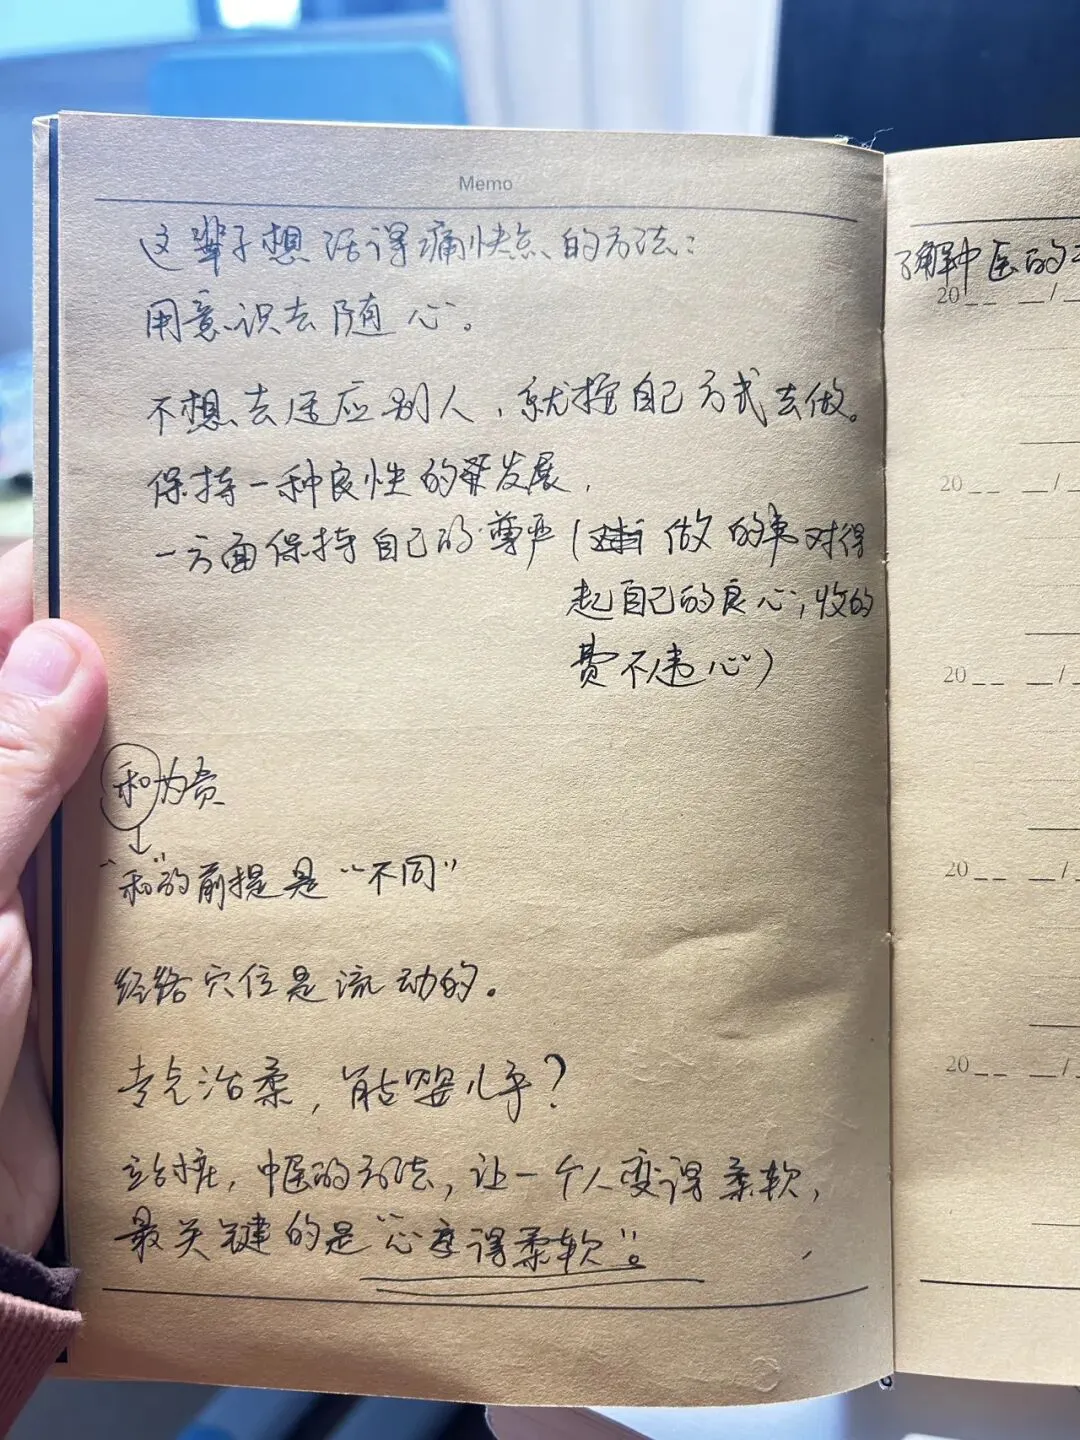 Memo
这辈子想活得痛快点的方法：
用意识去随心。
不想去适应别人，就按自己方式去做。
保持一种良性的发展，
一方面保持自己的尊严（做的事对得
起自己的良心，收的
费不违心）
和为贵
"和"的前提是"不同"
经络穴位是流动的。
专气治柔，能婴儿乎？
站桩，中医的方法，让一个人变得柔软，
最关键的是"心变得柔软"。
了解中医的
20__ __/
20__ __/
20__ __/
20__ __/
20__ __/